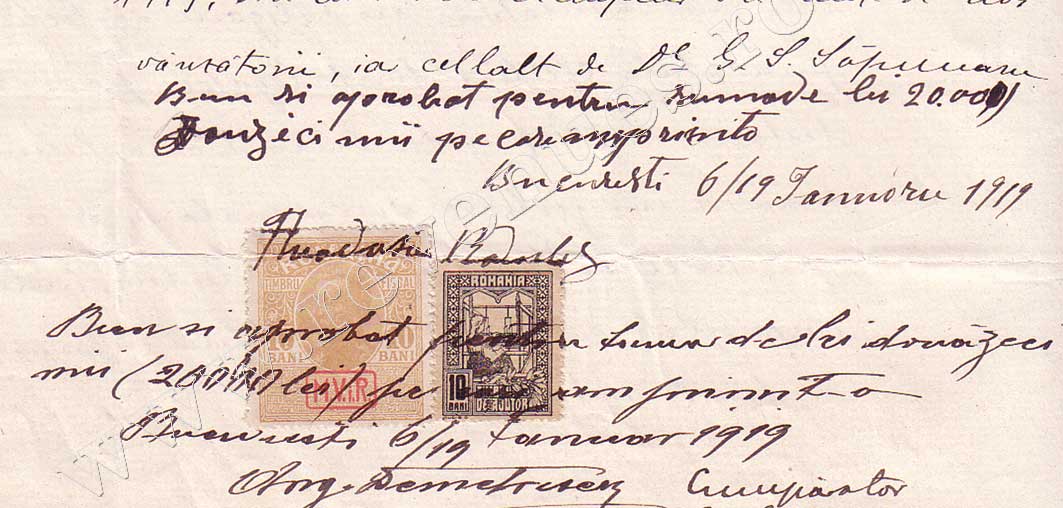 vânzătorii, iar cellalt de Dl G. S. Săpunaru
Bun si aprobat pentru suma de lei 20.000
Douzeci mii pe care am primito
Bucuresti 6/19 Ianuarie 1919
Theodosie
TIMBRU FISCAL
ROMANIA
10 BANI
M.V.i.R.
10 BANI
DE AJUTOR
Bun si aprobat pentru suma de lei douăzeci
mii (20.000 lei) pe care am primit-o
Bucuresti 6/19 Ianuar 1919
Ang. Demetrescu Cumpărător
www.revenues.ro